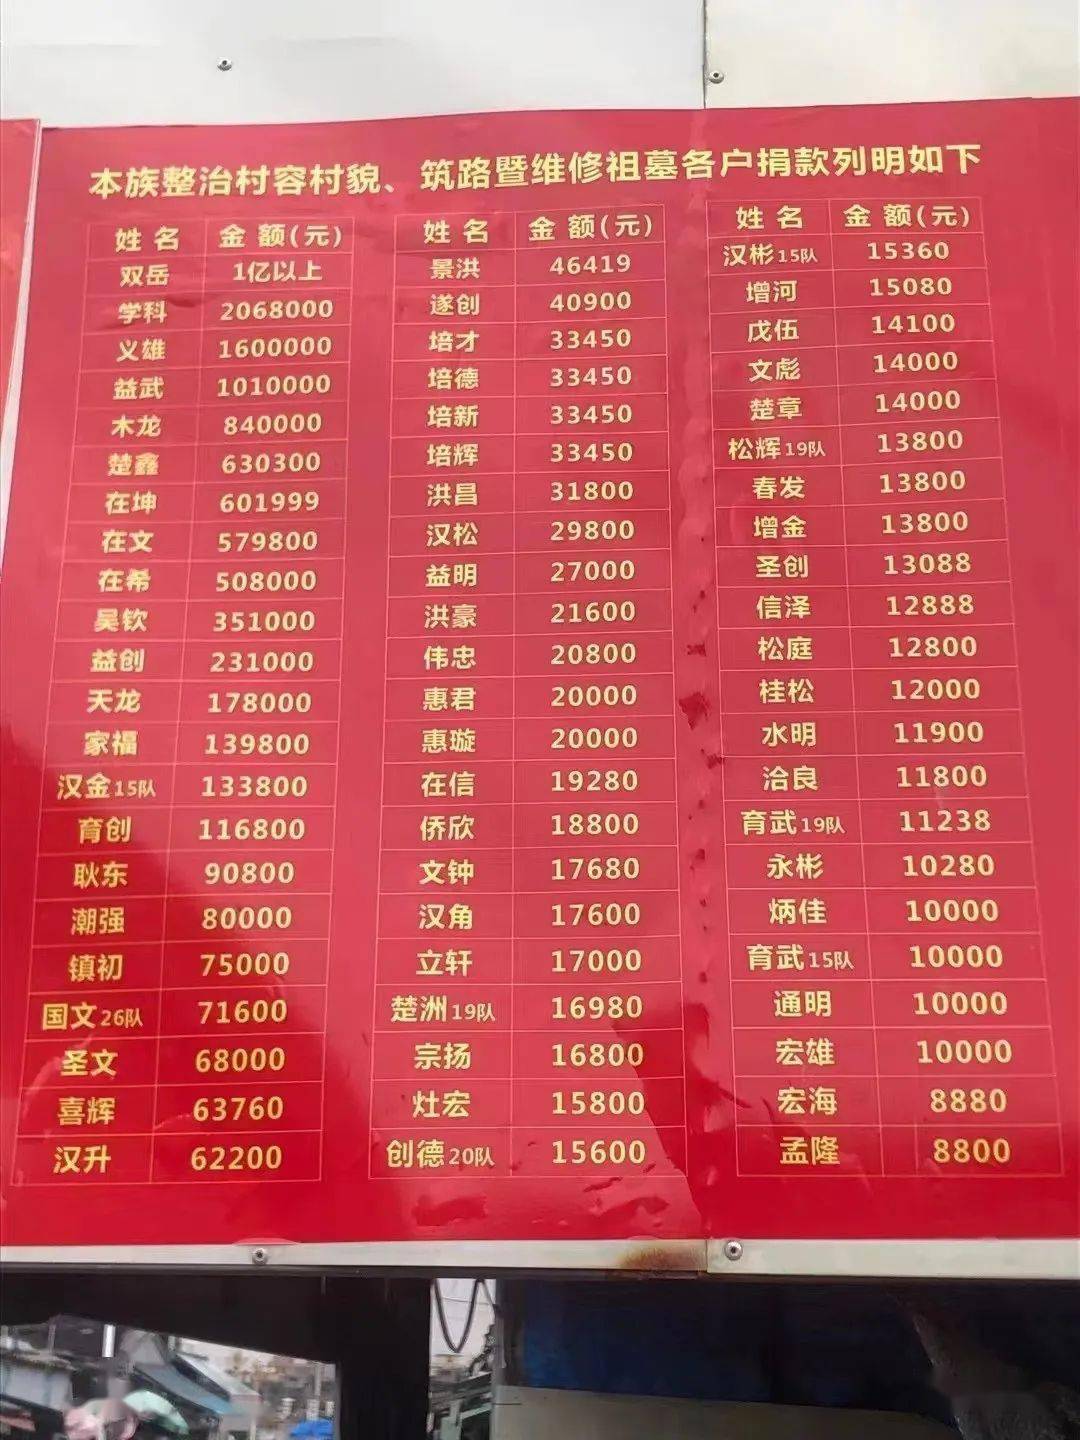 本族整治村容村貌、筑路暨维修祖墓各户捐款列明如下
姓 名 金 额(元)
双岳 1亿以上
学科 2068000
义雄 1600000
益武 1010000
木龙 840000
楚鑫 630300
在坤 601999
在文 579800
在希 508000
吴钦 351000
益创 231000
天龙 178000
家福 139800
汉金15队 133800
育创 116800
耿东 90800
潮强 80000
镇初 75000
国文26队 71600
圣文 68000
喜辉 63760
汉升 62200
姓 名 金 额(元)
景洪 46419
遂创 40900
培才 33450
培德 33450
培新 33450
培辉 33450
洪昌 31800
汉松 29800
益明 27000
洪豪 21600
伟忠 20800
惠君 20000
惠璇 20000
在信 19280
侨欣 18800
文钟 17680
汉角 17600
立轩 17000
楚洲19队 16980
宗扬 16800
灶宏 15800
创德20队 15600
姓 名 金 额(元)
汉彬15队 15360
增河 15080
戊伍 14100
文彪 14000
楚章 14000
松辉19队 13800
春发 13800
增金 13800
圣创 13088
信泽 12888
松庭 12800
桂松 12000
水明 11900
洽良 11800
育武19队 11238
永彬 10280
炳佳 10000
育武15队 10000
通明 10000
宏雄 10000
宏海 8880
孟隆 8800